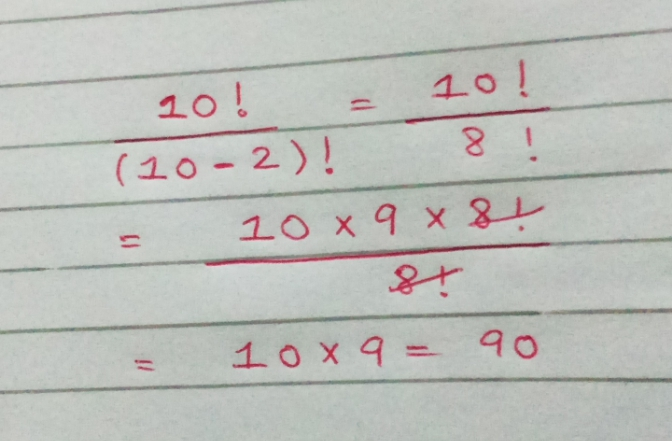 10! / (10-2)! = 10! / 8!
= 10 × 9 × 8! / 8!
= 10 × 9 = 90